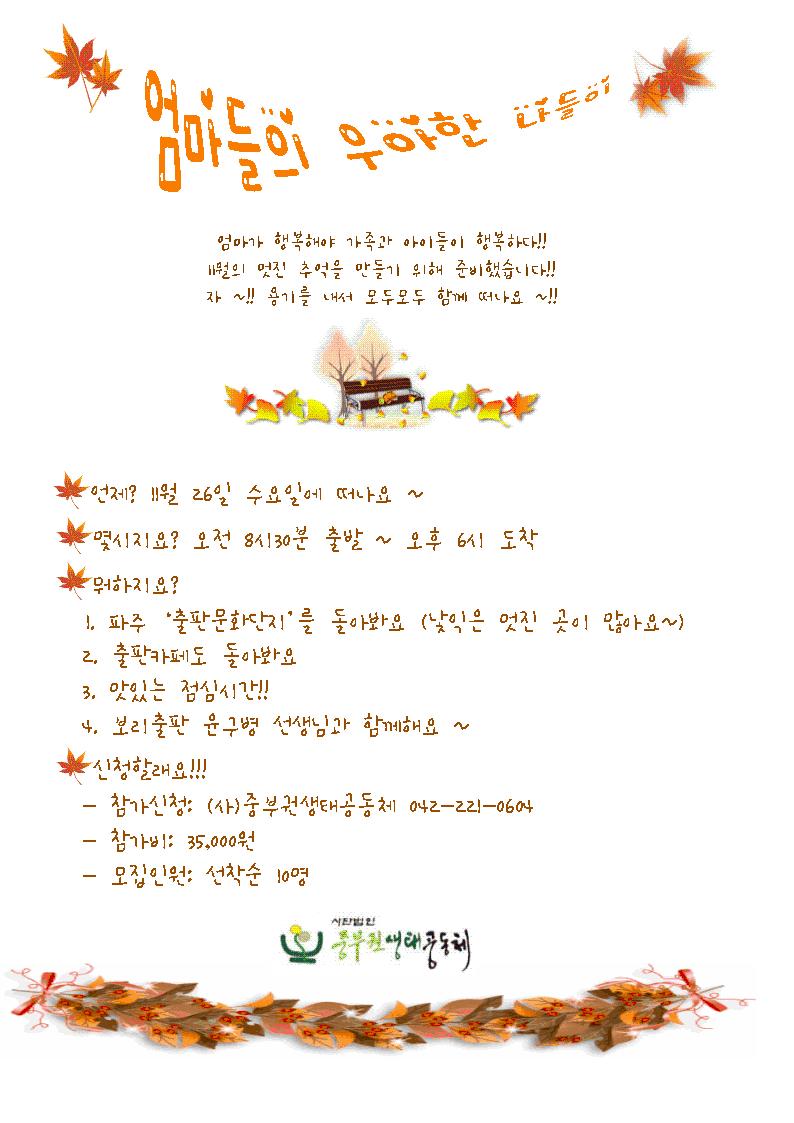 엄마들의 우아한 나들이
엄마가 행복해야 가족과 아이들이 행복하다!!
11월의 멋진 추억을 만들기 위해 준비했습니다!!
자 ~!! 용기를 내서 모두모두 함께 떠나요 ~!!
언제? 11월 26일 수요일에 떠나요 ~
몇시지요? 오전 8시30분 출발 ~ 오후 6시 도착
뭐하지요?
1. 파주 '출판문화단지'를 돌아봐요 (낯익은 멋진 곳이 많아요~)
2. 출판카페도 돌아봐요
3. 맛있는 점심시간!!
4. 보리출판 윤구병 선생님과 함께해요 ~
신청할래요!!!
- 참가신청: (사)중부권생태공동체 042-221-0604
- 참가비: 35,000원
- 모집인원: 선착순 10명
사단법인
중부권생태공동체